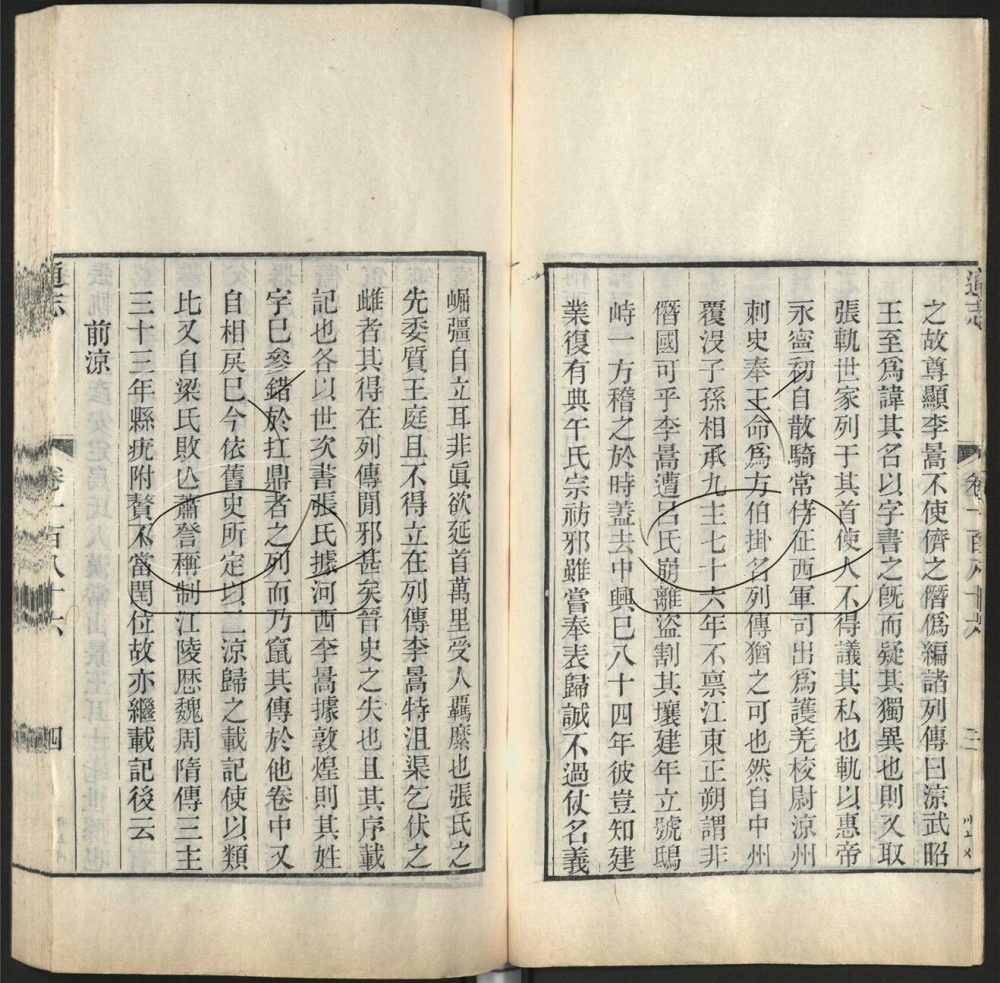 之故尊顯李暠不使儕之僭僞編諸列傳曰涼武昭
王至爲諱其名以字書之旣而疑其獨異也則又取
張軌世家列于其首使人不得議其私也軌以惠帝
永寧初自散騎常侍征西軍司出爲護羌校尉涼州
刺史奉王命爲方伯掛名列傳猶之可也然自中州
覆沒子孫相承九主七十六年不禀江東正朔謂非
僭國可乎李暠遭呂氏崩離盜割其壤建年立號鴟
峙一方稽之於時蓋去中興巳八十四年彼豈知建
業復有典午氏宗祊邪雖嘗奉表歸誠不過仗名義
崛彊自立耳非眞欲延首萬里受人羈縻也張氏之
先委質王庭且不得立在列傳李暠特沮渠乞伏之
雌者其得在列傳閒邪甚矣晉史之失也且其序載
記也各以世次書張氏據河西李暠據敦煌則其姓
字巳參錯於扛鼎者之列而乃竄其傳於他卷中又
自相戾巳今依舊史所定以二涼歸之載記使以類
比又自梁氏敗亾蕭詧稱制江陵歷魏周隋傳三主
三十三年縣疣附贅不當閏位故亦繼載記後云
前涼
通志
卷一百八十六
四